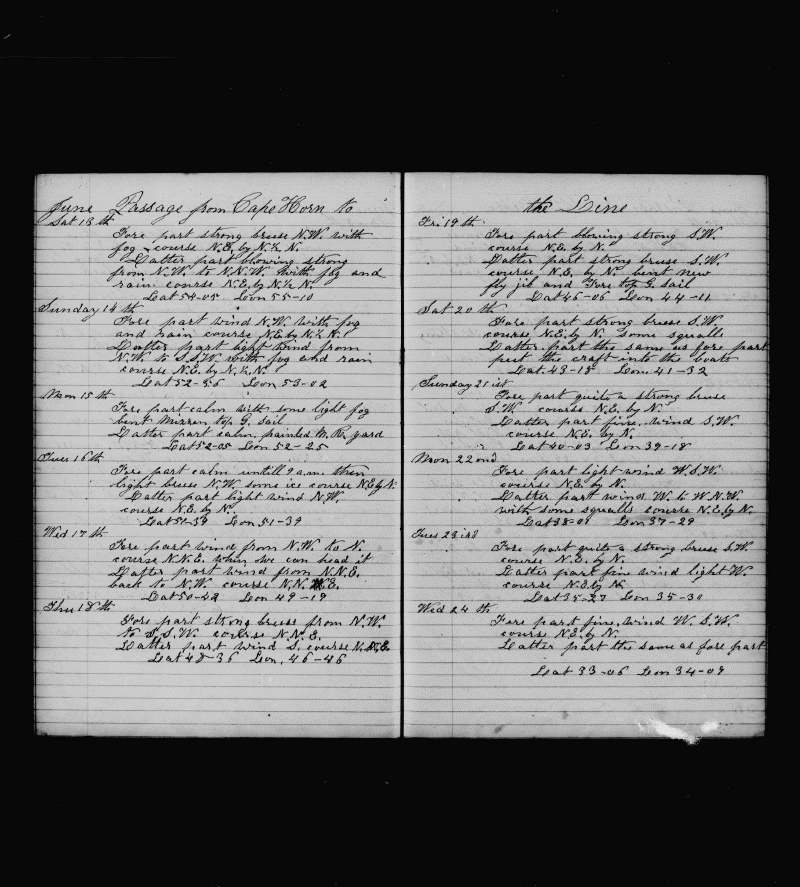 June Passage from Cape Horn to
Sat 13 th
Fore part strong breese N.W. with
fog course N.E. by N.½ N.
Latter part blowing strong
from N.W. to N.N.W. with fog and
rain course N.E. by N.½ N.
Lat 54-05 Lon 55-10
Sunday 14 th
Fore part wind N.W. with fog
and rain course N.E. by N.½ N.
Latter part light wind from
N.W. to S.S.W. with fog and rain
course N.E. by N.½ N.
Lat 52-56 Lon 53-02
Mon 15 th
Fore part calm with some light fog
bent Mizzen top G. sail
Latter part calm, painted M. R. yard
Lat 52-05 Lon 52-25
Tues 16 th
Fore part calm untill 9 a.m. then
light breese N.W. some ice course N.E. by N.
Latter part light wind N.W.
course N.E. by N.
Lat 51-39 Lon 51-39
Wed 17 th
Fore part wind from N.W. to N.
course N.N.E. when we can head it
Latter part wind from N.N.E.
back to N.W. course N.N.E.
Lat 50-42 Lon 49-19
Thu 18 th
Fore part strong breese from N.W.
to S.S.W. course N.N.E.
Latter part wind S. course N.N.E.
Lat 48-36 Lon. 46-46
the Line
Fri 19 th
Fore part blowing strong S.W.
course N.E. by N.
Latter part strong breese S.W.
course N.E. by N. bent new
fly jib and Fore top G. sail
Lat 46-06 Lon 44-11
Sat 20 th
Fore part strong breese S.W.
course N.E. by N. some squalls
Latter part the same as fore part
put the craft into the boats
Lat 43-15 Lon. 41-32
Sunday 21 ist
Fore part quite a strong breese
S.W. course N.E. by N.
Latter part fine, wind S.W.
course N.E. by N.
Lat 40-03 Lon 39-18
Mon 22 ond
Fore part light wind W.S.W.
course N.E. by N.
Latter part wind W. to W.N.W.
with some squalls course N.E. by N.
Lat 38-01 Lon 37-29
Tues 23 ird
Fore part quite a strong breese S.W.
course N.E. by N.
Latter part fine wind light W.
course N.E. by N.
Lat 35-27 Lon 35-30
Wed 24 th
Fore part fine, wind W.S.W.
course N.E. by N.
Latter part the same as fore part
Lat 33-06 Lon 34-09